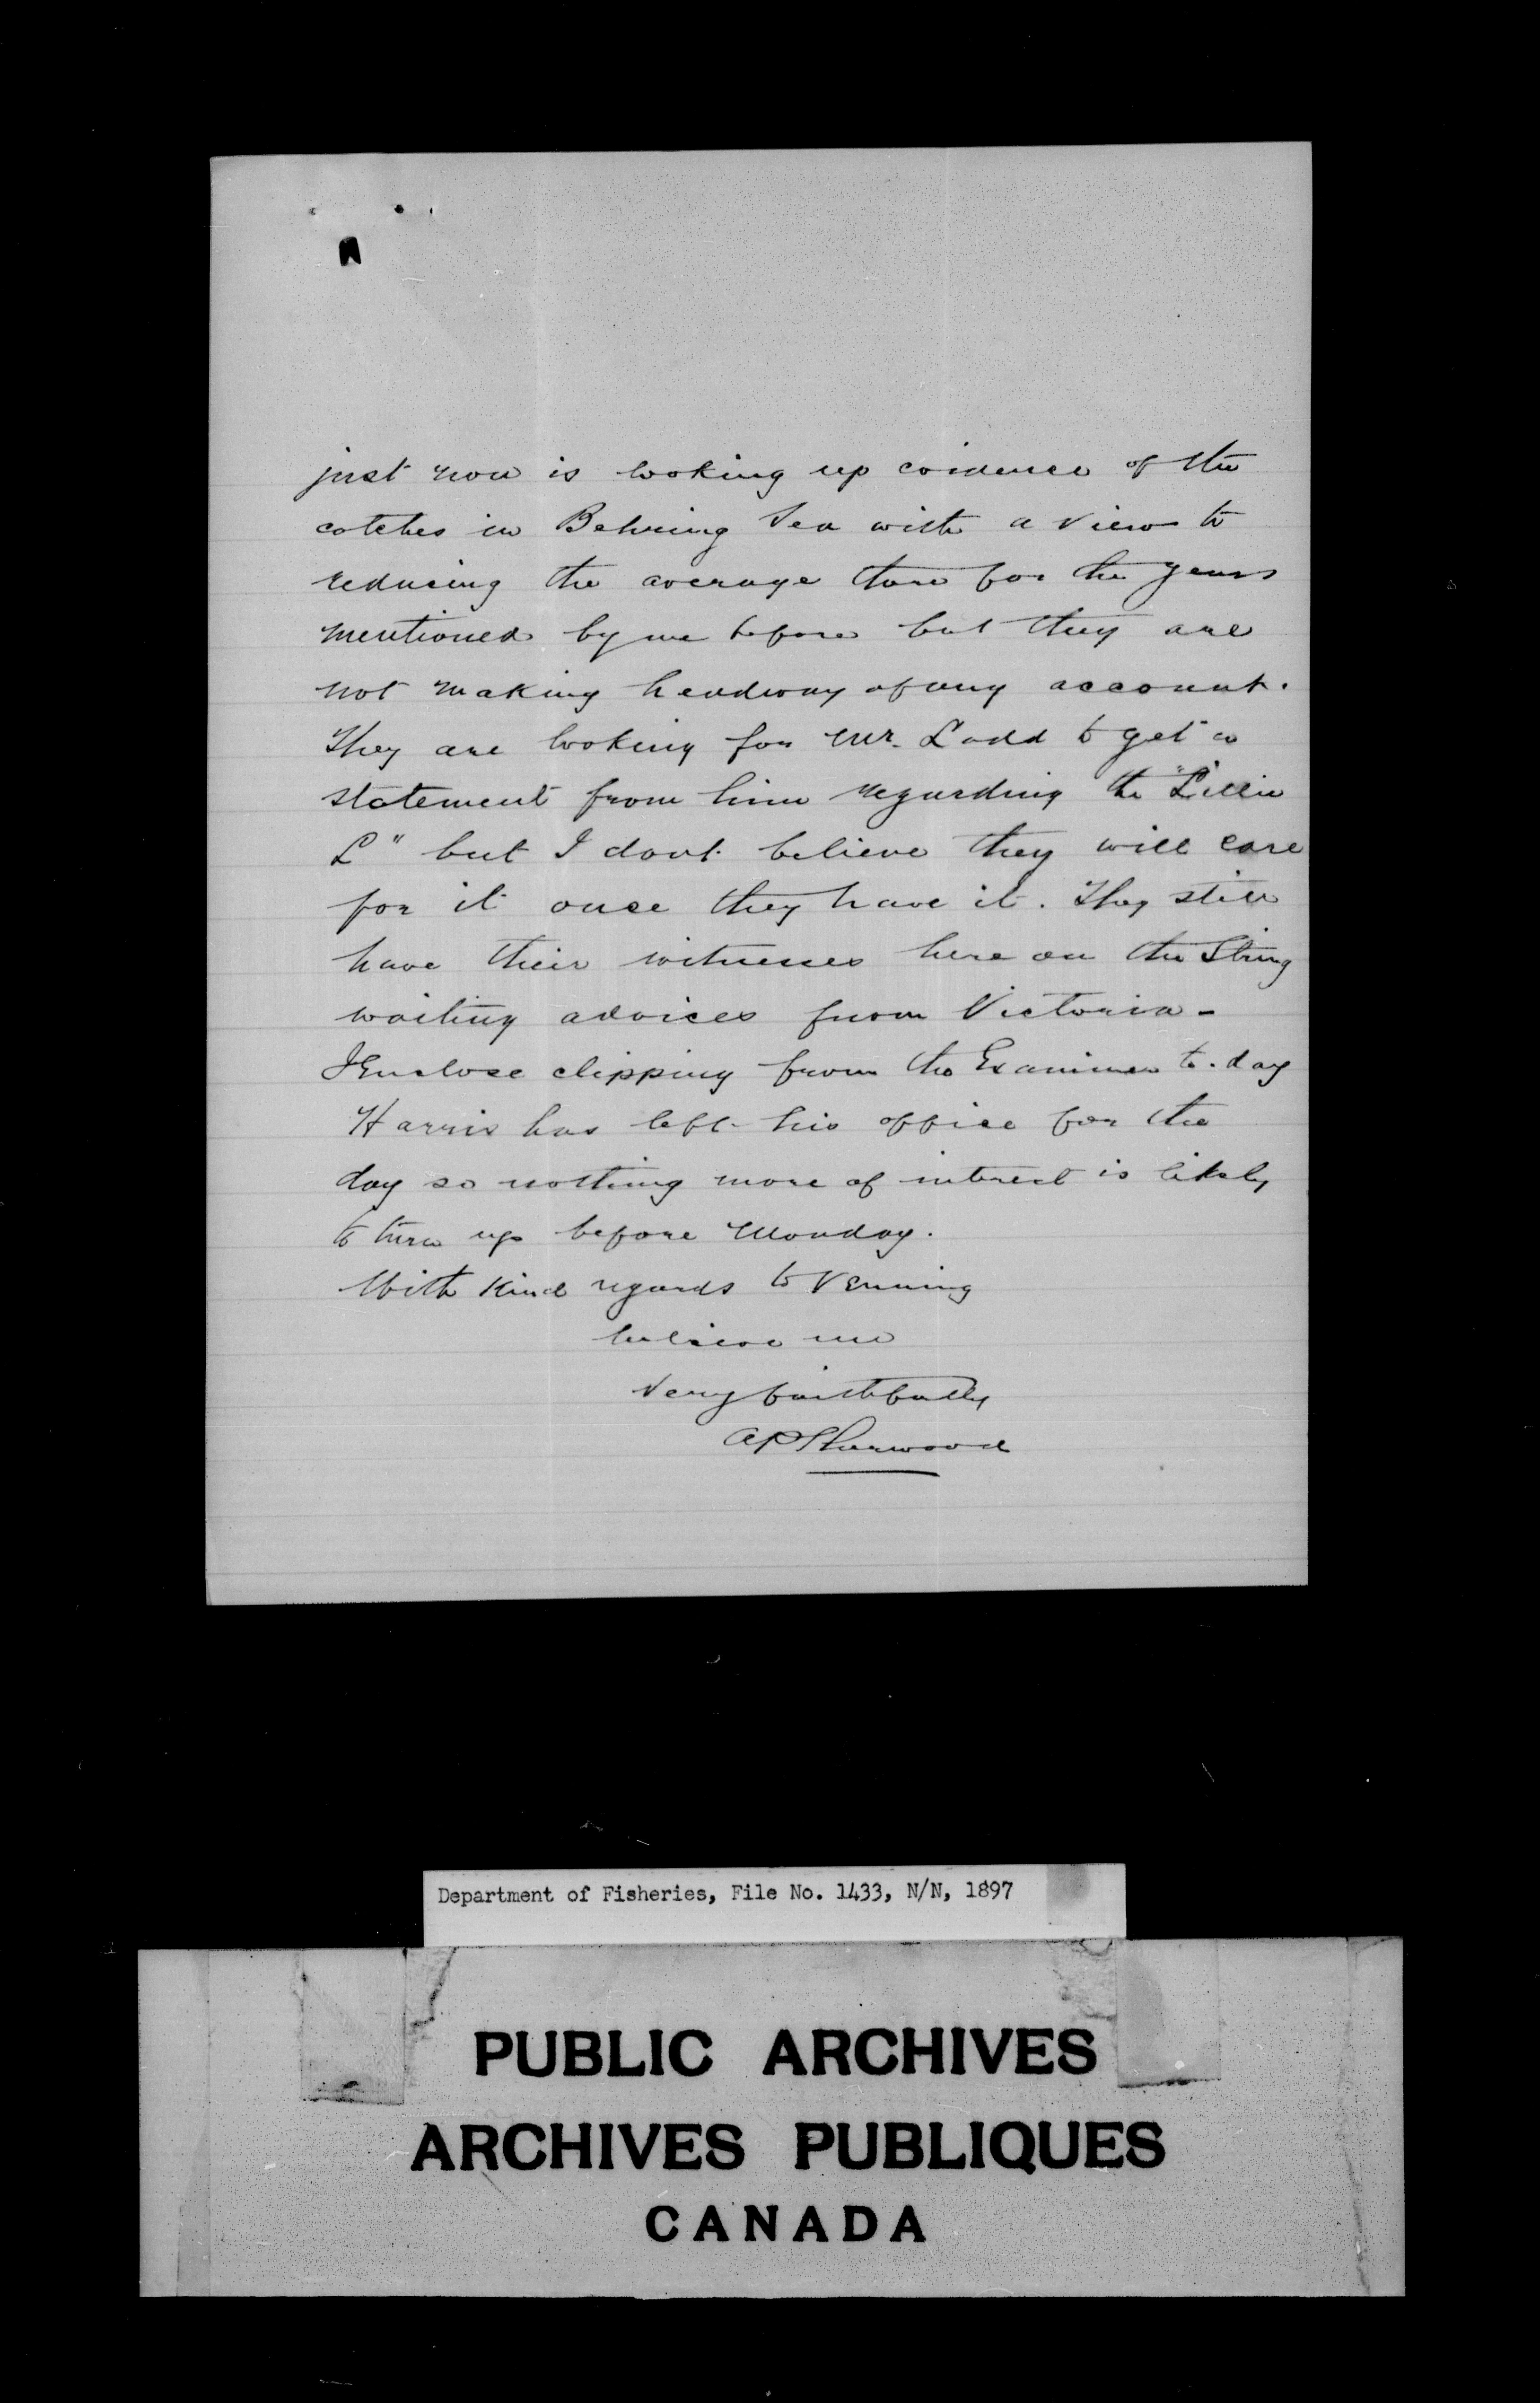 just now is looking up evidence of the
catches in Behring Sea with a view to
reducing the average there for the years
mentioned by me before but they are
not making headway of any account.
They are looking for Mr. Ladd to get a
statement from him regarding the "Lillie
L" but I dont believe they will care
for it once they have it. They still
have their witnesses here on the String
waiting advices from Victoria -
I Enclose clipping from the Examiner to-day
Harris has left his office for the
day so nothing more of interest is likely
to turn up before Monday.
With Kind regards to Venning
believe me
Very faithfully
A P Sherwood
Department of Fisheries, File No. 1433, N/N, 1897
PUBLIC ARCHIVES
ARCHIVES PUBLIQUES
CANADA